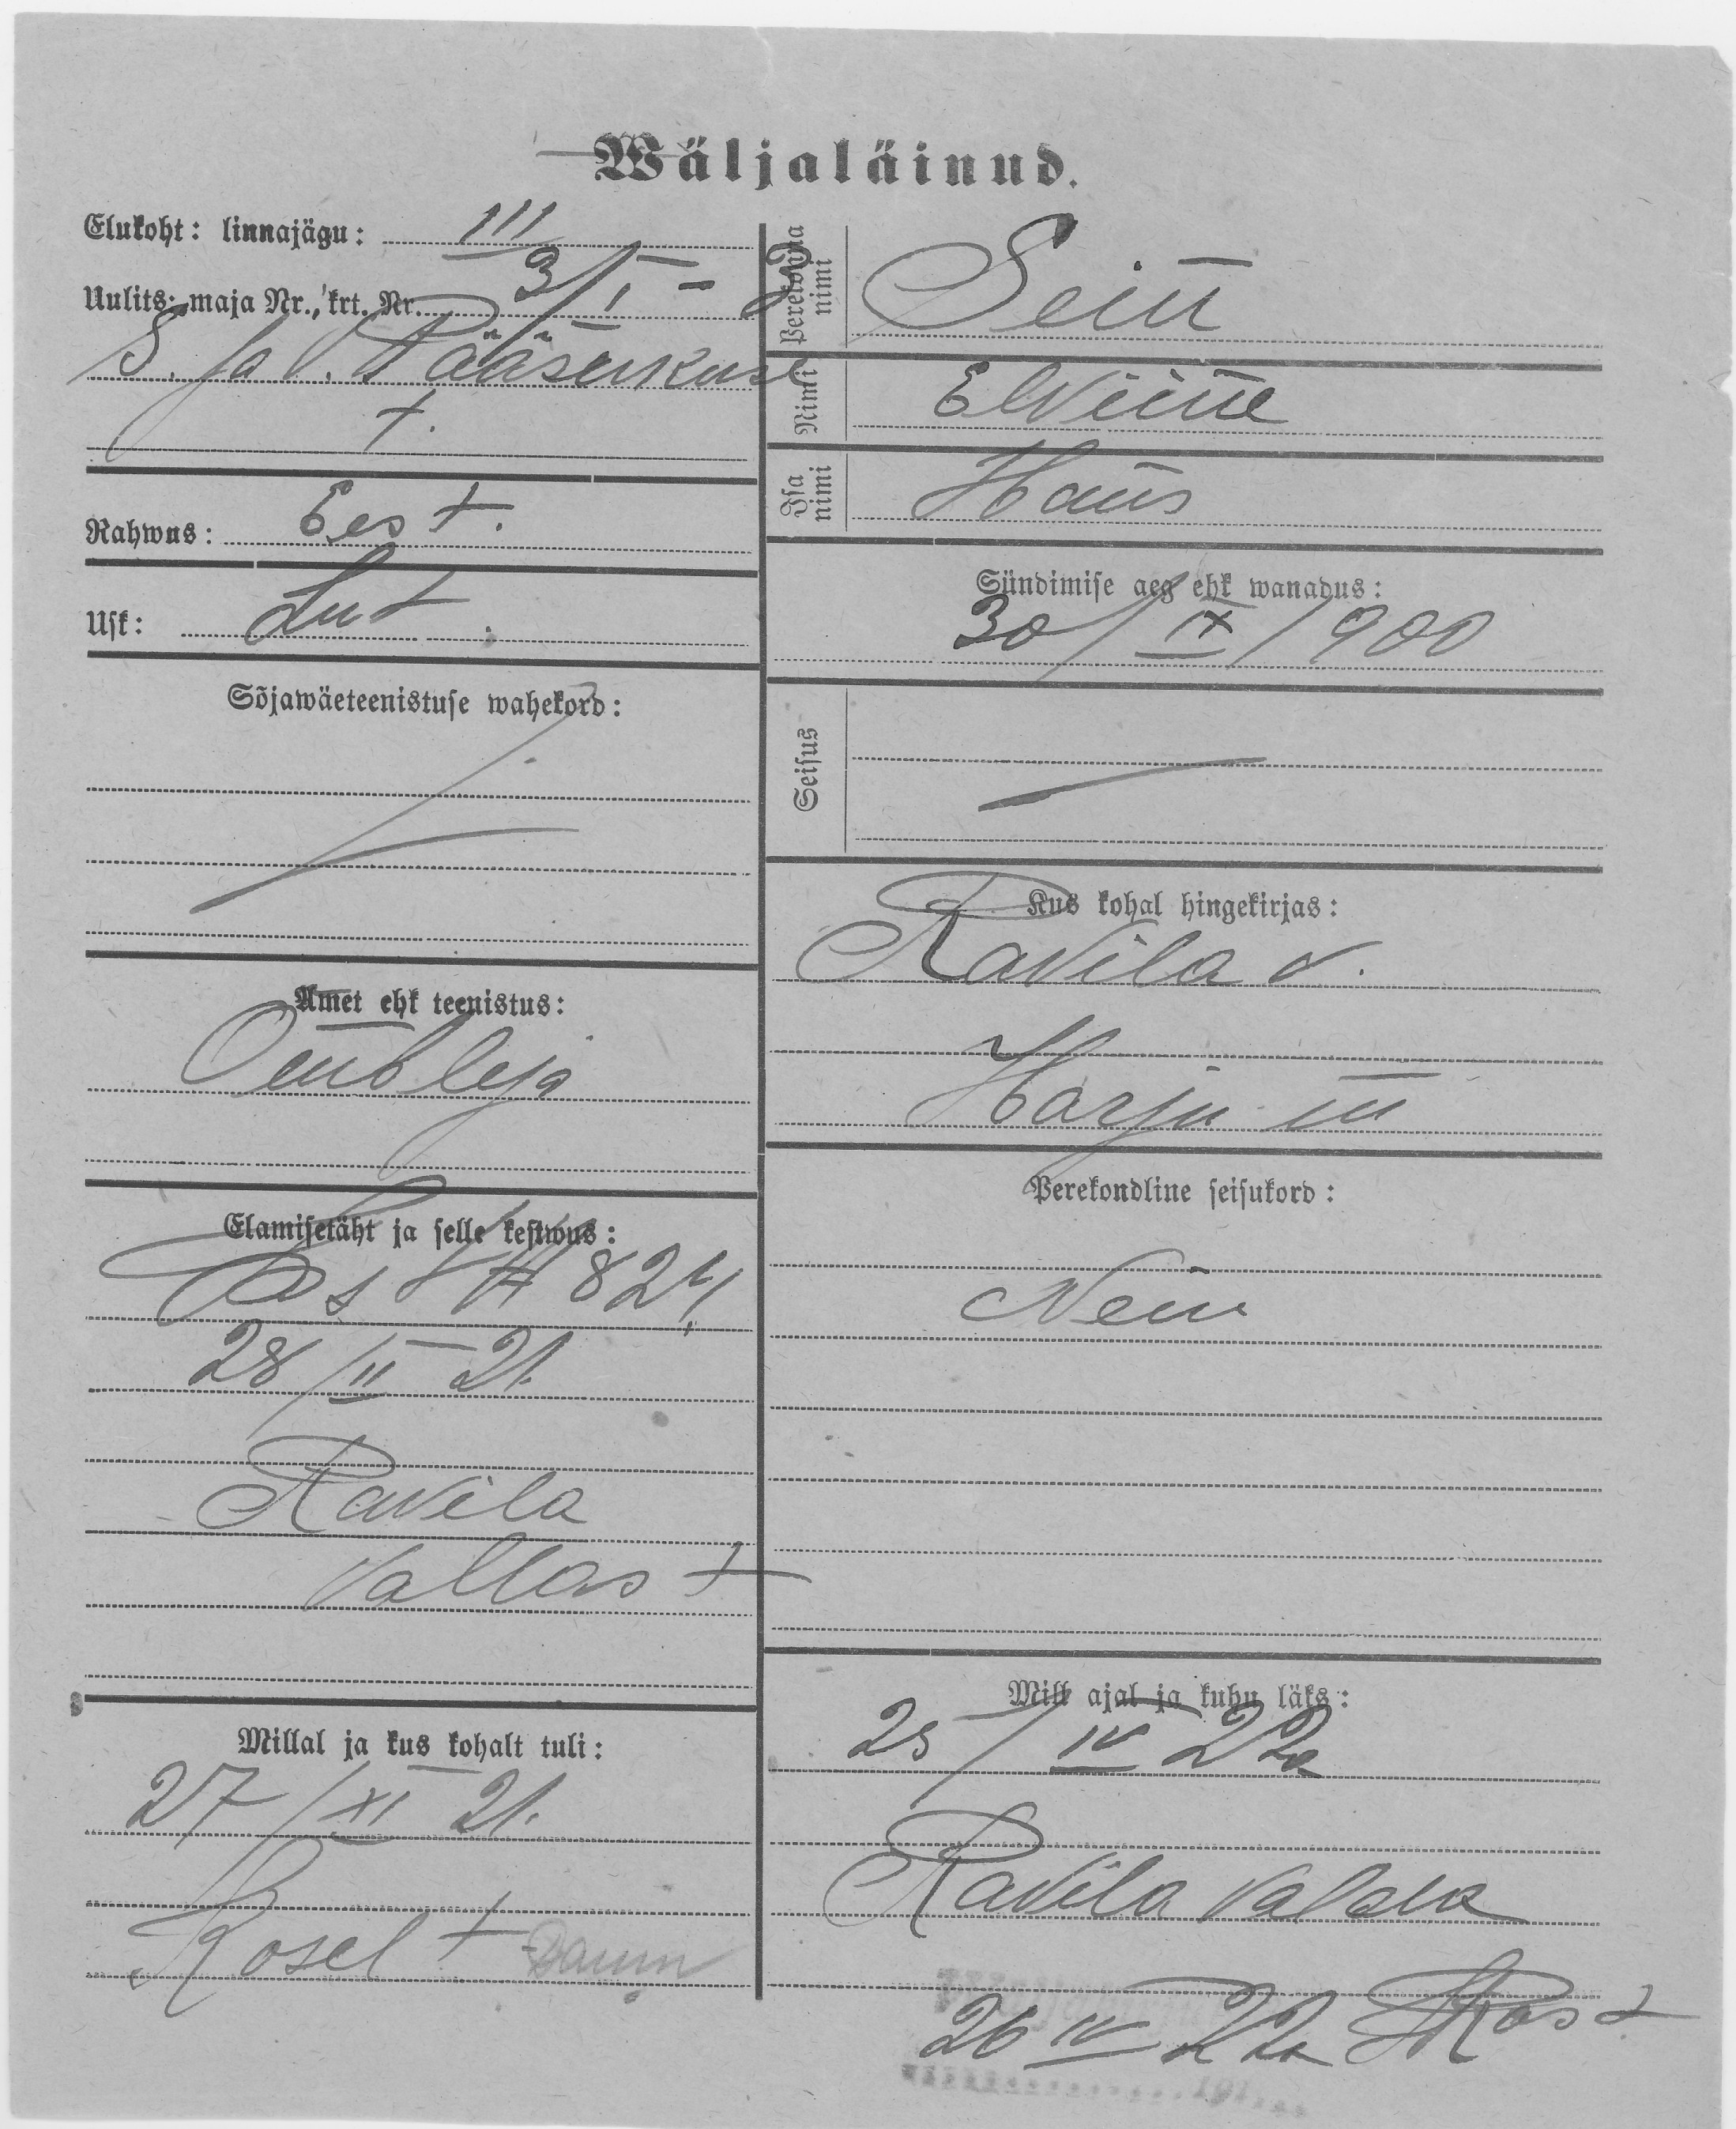 Wäljaläinud.
Elukoht: linnajägu: III
Uulits, maja Nr., krt. Nr. 3/I - 2
S. ja V. Pääsukese
t.
Rahwus: Eest.
Usk: Lut.
Sõjawäeteenistuse wahekord:
Amet ehk teenistus:
Õmbleja
Elamisetäht ja selle kestwus:
824
28/II 21.
Ravila
Vallast
Millal ja kus kohalt tuli:
27/XI 21.
Koselt
Perekonna nimi Sein
Nimi Elviine
Isa nimi Hans
Sündimise aeg ehk wanadus:
30/IX/900
Seisus
Kus kohal hingekirjas:
Ravila v.
Harju m
Perekondline seisukord:
Neiu
Mill ajal ja kuhu läks:
25/IV 22a
Ravila valda
26 IV 22a